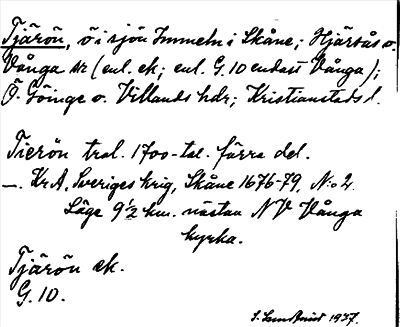 Tjärön, ö i sjön Immeln i Skåne; Hjärsås o.
Vånga snr (enl. ek; enl. G. 10 endast Vånga);
Ö. Göinge o. Villands hdr; Kristianstads l.
Tierön trol. 1700-tal. förra del.
—. KrA, Sveriges krig, Skåne 1676-79, N:o 2.
Läge 9½ km. nästan NV Vånga
kyrka.
Tjärön ek.
G. 10.
S. Sundquist 1937.